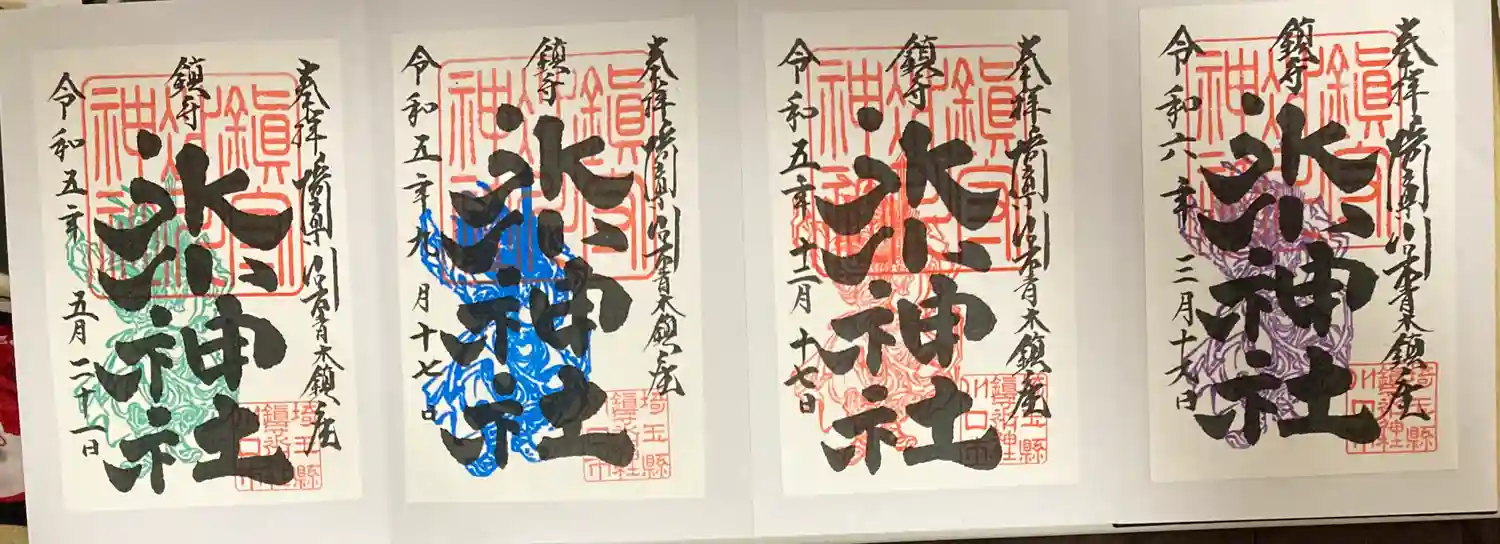 奉拝 埼玉県川口市青木鎮座
鎮守
氷川神社
令和五年五月二十一日
鎮守
氷川
神社
埼玉縣
鎮守氷川神社
川口市
奉拝 埼玉県川口市青木鎮座
鎮守
氷川神社
令和五年九月十七日
鎮守
氷川
神社
埼玉縣
鎮守氷川神社
川口市
奉拝 埼玉県川口市青木鎮座
鎮守
氷川神社
令和五年十二月十七日
鎮守
氷川
神社
埼玉縣
鎮守氷川神社
川口市
奉拝 埼玉県川口市青木鎮座
鎮守
氷川神社
令和六年三月十七日
鎮守
氷川
神社
埼玉縣
鎮守氷川神社
川口市